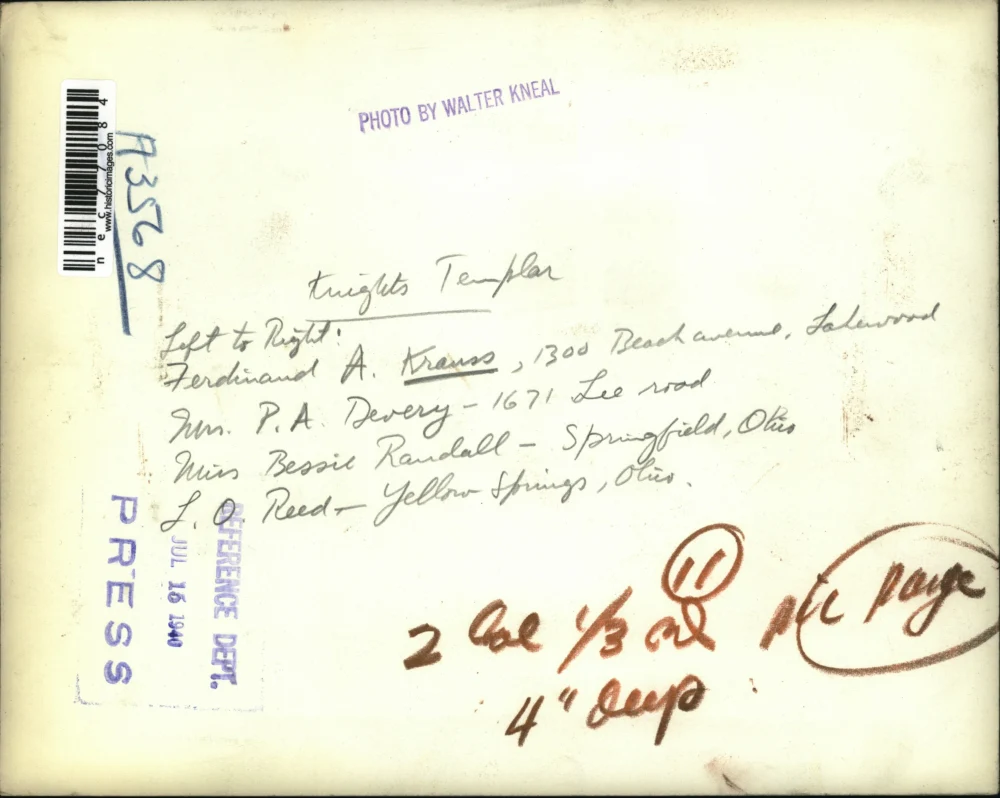 PHOTO BY WALTER KNEAL
www.historicimages.com
A3568
Knights Templar
Left to Right:
Ferdinand A. Krauss, 1300 Beach avenue, Lakewood
Mrs. P. A. Devery - 1671 Lee road
Miss Bessie Randall - Springfield, Ohio
L. O Reed - Yellow Springs, Ohio.
PRESS
JUL 16 1940
REFERENCE DEPT.
11
2 Col 1/3 pic page
4" deep